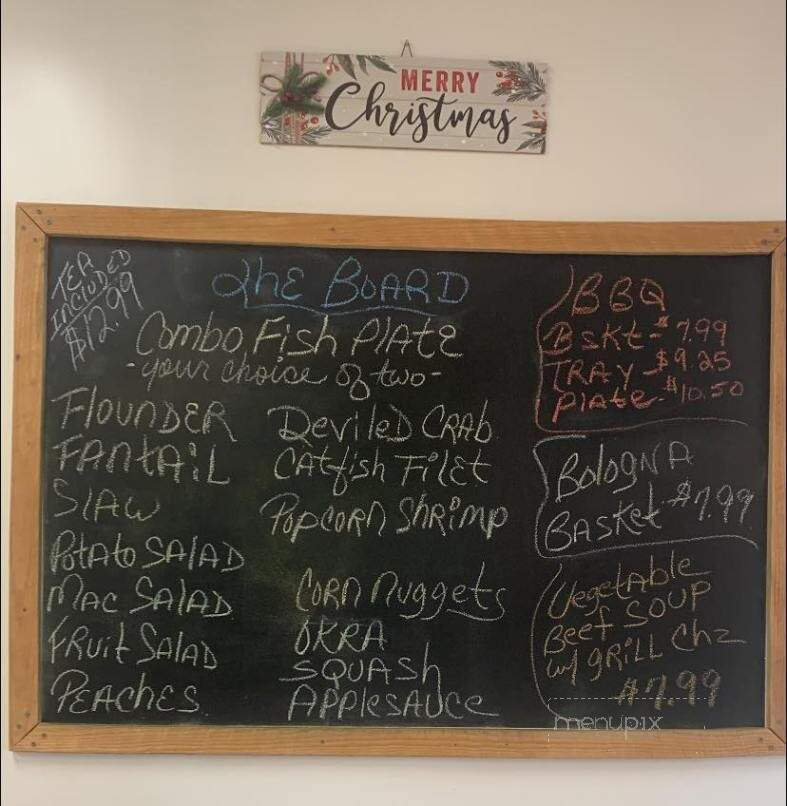 MERRY
Christmas
TEA
INCLUDED
$12.99
The BOARD
Combo Fish Plate
-your choice of two-
Flounder
Fantail
Slaw
Potato Salad
Mac Salad
Fruit Salad
Peaches
Deviled Crab
Catfish Filet
Popcorn Shrimp
Corn Nuggets
Okra
Squash
Applesauce
BBQ
Bskt - $7.99
Tray - $9.25
Plate - $10.50
Bologna
Basket $7.99
Vegetable
Beef Soup
w/ Grill Chz
$7.99
menupix